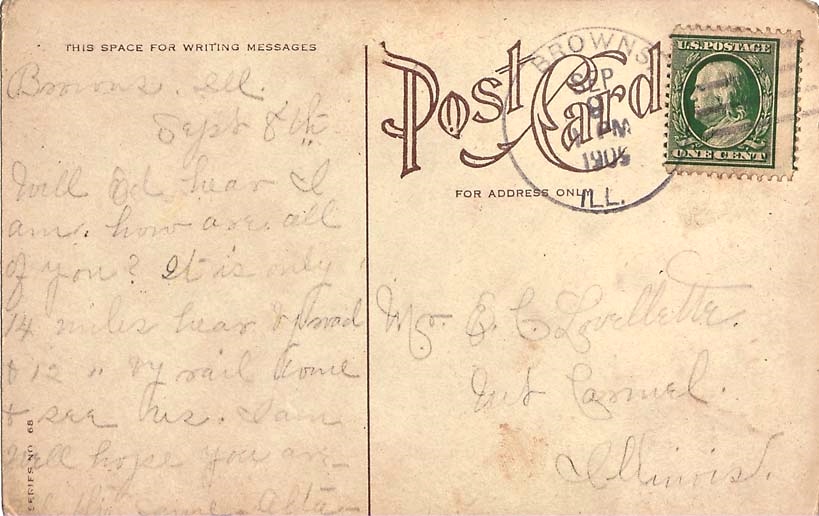 THIS SPACE FOR WRITING MESSAGES
Post Card
FOR ADDRESS ONLY
BROWNS
SEP
9
PM
ILL.
U.S. POSTAGE
ONE CENT
Browns. Ill.
Sept 8th
Will Ed hear I
am. how are all
of you? It is only
14 miles hear by road
& 12 " by rail Come
& see us. I am
Well hope you are
the same
Mr. E. C. Lovellette.
Mt Carmel.
Illinois.
SERIES NO. 68